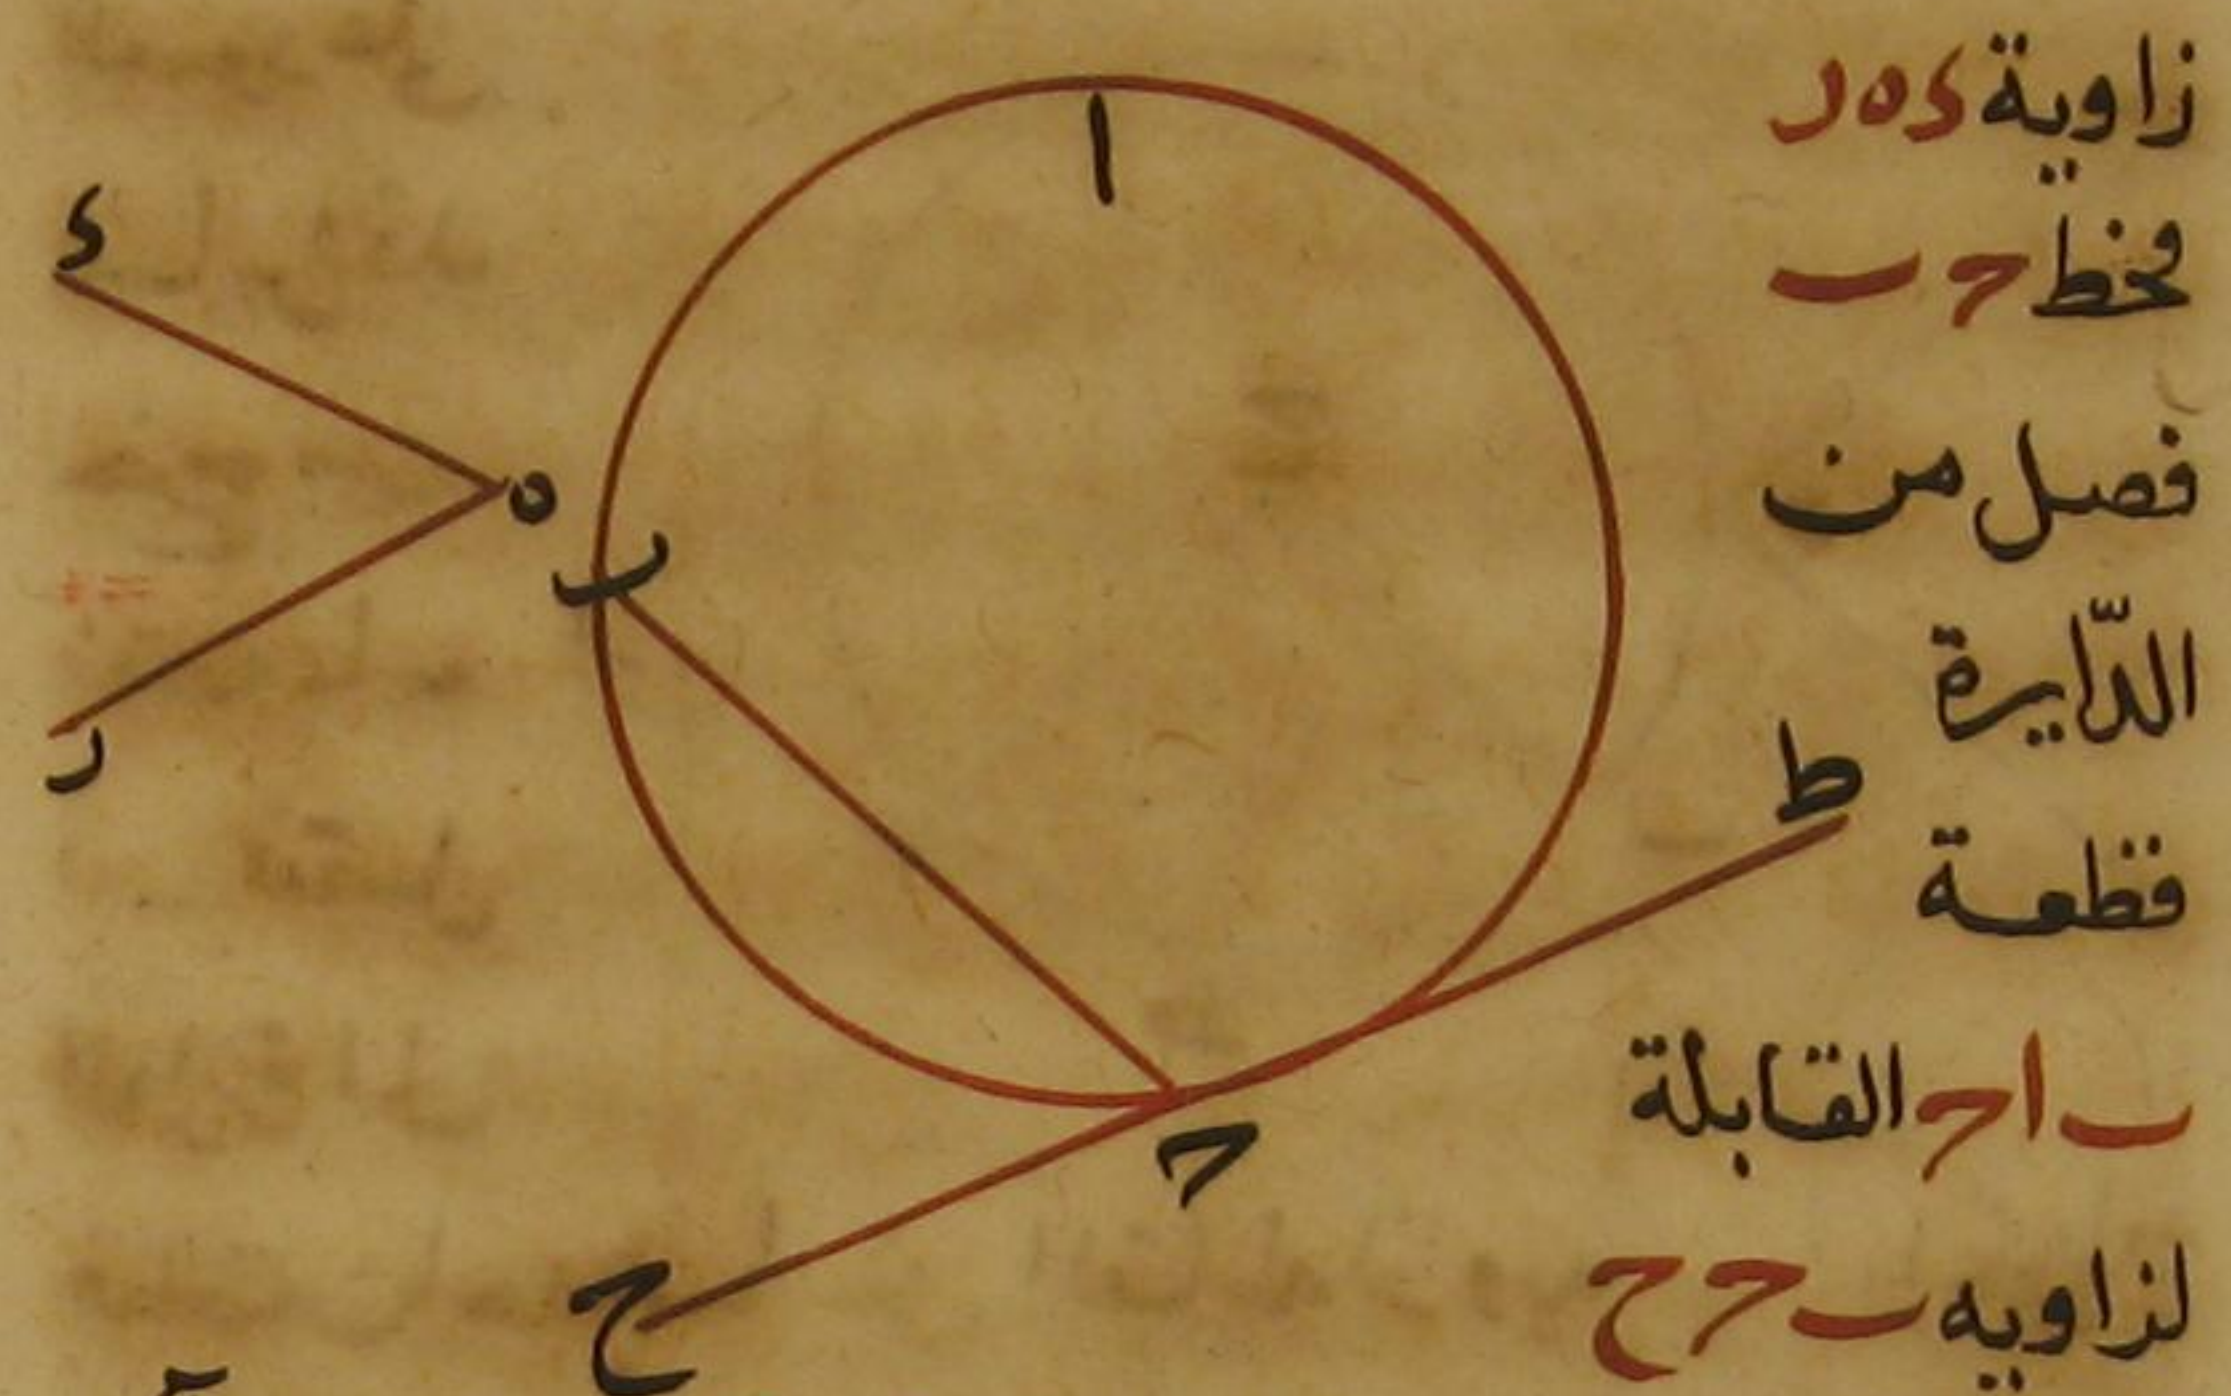 زاوية ده ر
فخط حـ ب
فصل من
الدّايرة
قطعة
ب ا حـ القابلة
لزاويه ب حـ ح
ا
د
ه
ب
ر
ط
حـ
ح